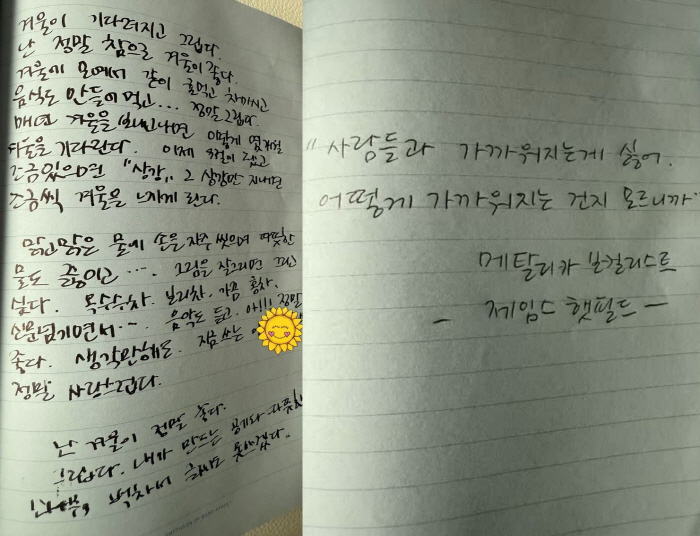 겨울이 기다려지고 그립다.
난 정말 참으로 겨울이 좋다.
겨울에 모여서 같이 굴먹고 차마시고
음식도 만들어 먹고... 정말 그립다.
매년 겨울을 보내고나면 이렇게
겨울을 기다린다. 이제
조금있으면 "상강" 그 상강만 지나면
조금씩 겨울을 느끼게 된다.
맑고맑은 물에 손을 자주 씻으며 따뜻한
물도 좋이고 .... 그림을 잘그리면 그리고
싶다. 옥수수차. 보리차. 가끔 홍차.
신문넘기면서... 음악도 듣고. 아!!! 정말
좋다. 생각만해도. 지금 쓰는
정말 사랑스럽다.
난 겨울이 정말 좋다.
그립다. 내가 만드는
벅차서 글씨도 못쓰겠다..
"사람들과 가까워지는게 싫어.
어떻게 가까워지는 건지 모르니까"
메탈리카 보컬리스트
- 제임스 햇필드 -